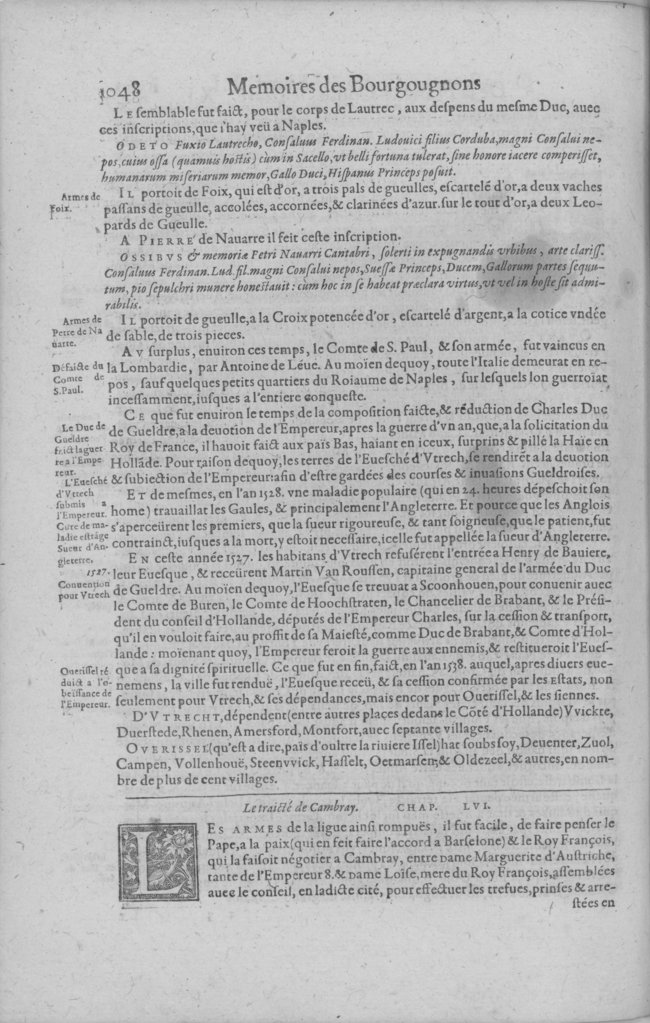 1048 Memoires des Bourgougnons
LE semblable fut faict, pour le corps de Lautrec, aux despens du mesme Duc, auec
ces inscriptions, que i'hay veü a Naples.
ODETO Fuxio Lautrecho, Consaluus Ferdinan. Ludouici filius Corduba, magni Consalui ne-
pos, cuius ossa (quamuis hostis) cùm in Sacello, vt belli fortuna tulerat, sine honore iacere comperisset,
humanarum miseriarum memor, Gallo Duci, Hispanus Princeps posuit.
Armes de
Foix.
IL portoit de Foix, qui est d'or, a trois pals de gueulles, escartelé d'or, a deux vaches
passans de gueulle, accolées, accornées, & clarinées d'azur. sur le tout d'or, a deux Leo-
pards de Gueulle.
A PIERRE de Nauarre il feit ceste inscription.
OSSIBVS & memoriæ Petri Nauarri Cantabri, solerti in expugnandis vrbibus, arte clariss.
Consaluus Ferdinan. Lud. fil. magni Consalui nepos, Suessæ Princeps, Ducem, Gallorum partes sequu-
tum, pio sepulchri munere honestauit: cùm hoc in se habeat præclara virtus, vt vel in hoste sit admi-
rabilis.
Armes de
Petre de Na
uarte.
IL portoit de gueulle, a la Croix potencée d'or, escartelé d'argent, a la cotice vndée
de sable, de trois pieces.
Défaicte du
Comte de
S. Paul.
AV surplus, enuiron ces temps, le Comte de S. Paul, & son armée, fut vaincus en
la Lombardie, par Antoine de Léue. Au moïen dequoy, toute l'Italie demeurat en re-
pos, sauf quelques petits quartiers du Roiaume de Naples, sur lesquels lon guerroiat
incessamment, iusques a l'entiere conqueste.
Le Duc de
Gueldre
faict la guer
re a l'Empe
reur.
CE que fut enuiron le temps de la composition faicte, & réduction de Charles Duc
de Gueldre, a la deuotion de l'Empereur, apres la guerre d'vn an, que, a la solicitation du
Roy de France, il hauoit faict aux païs Bas, haiant en iceux, surprins & pillé la Haïe en
Hollãde. Pour raison dequoy, les terres de l'Euesché d'Vtrech, se rendirẽt a la deuotion
& subiection de l'Empereur: afin d'estre gardées des courses & inuasions Gueldroises.
L'Euesché
d'Vtrech
submis a
l'Empereur.
Cure de ma-
ladie estrãge
Sueur d'An-
gleterre.
ET de mesmes, en l'an 1528. vne maladie populaire (qui en 24. heures dépeschoit son
home) trauaillat les Gaules, & principalement l'Angleterre. Et pource que les Anglois
s'aperceürent les premiers, que la sueur rigoureuse, & tant soigneuse, que le patient, fut
contrainct, iusques a la mort, y estoit necessaire, icelle fut appellée la sueur d'Angleterre.
1527.
Conuention
pour Vtrech
EN ceste année 1527. les habitans d'Vtrech refusérent l'entrée a Henry de Bauiere,
leur Euesque, & receürent Martin Van Roussen, capitaine general de l'armée du Duc
de Gueldre. Au moïen dequoy, l'Euesque se treuuat a Scoonhouen, pour conuenir auec
le Comte de Buren, le Comte de Hoochstraten, le Chancelier de Brabant, & le Prési-
dent du conseil d'Hollande, députés de l'Empereur Charles, sur la cession & transport,
qu'il en vouloit faire, au proffit de sa Maiesté, comme Duc de Brabant, & Comte d'Hol-
lande: moïenant quoy, l'Empereur feroit la guerre aux ennemis, & restitueroit l'Eues-
que a sa dignité spirituelle. Ce que fut en fin, faict, en l'an 1538. auquel, apres diuers eue-
nemens, la ville fut renduë, l'Euesque receü, & sa cession confirmée par les Estats, non
seulement pour Vtrech, & ses dépendances, mais encor pour Oueríssel, & les siennes.
Ouerissel ré
duict a l'o-
beïssance de
l'Empereur.
D'VTRECHT, dépendent (entre autres places dedans le Cõté d'Hollande) VVickte,
Duerstede, Rhenen, Amersford, Montfort, auec septante villages.
OVERISSEL (qu'est a dire, païs d'oultre la riuiere Issel) hat soubs soy, Deuenter, Zuol,
Campen, Vollenhouë, Steenvvick, Hasselt, Oetmarsem, & Oldezeel, & autres, en nom-
bre de plus de cent villages.
Le traicté de Cambray. CHAP. LVI.
LES ARMES de la ligue ainsi rompuës, il fut facile, de faire penser le
Pape, a la paix (qui en feit faire l'accord a Barselone) & le Roy François,
qui, la faisoit négotier a Cambray, entre DAME Marguerite d'Austriche,
tante de l'Empereur 8. & DAME Loïse, mere du Roy François, assemblées
auec le conseil, en ladicte cité, pour effectuer les trefues, prinses & arre-
stées en